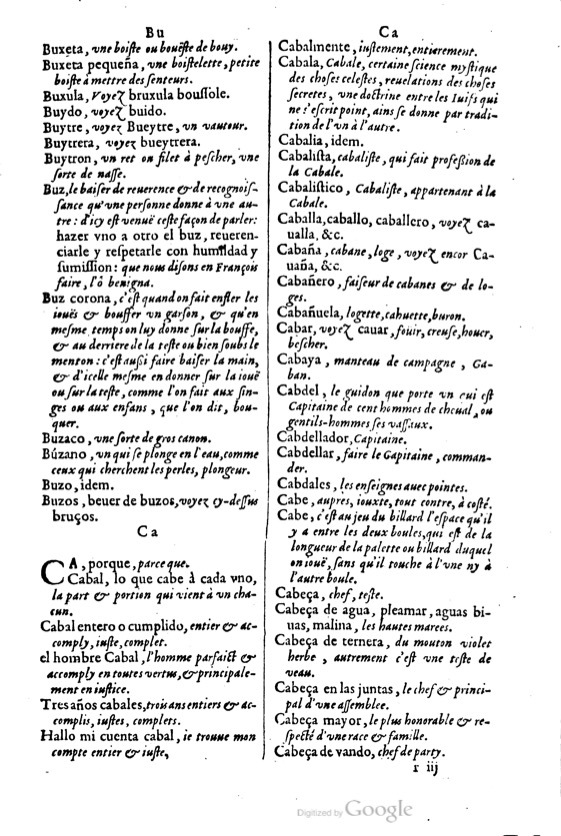 Bu
Buxeta, vne boiste ou bouëste de bouy.
Buxeta pequeña, vne boistelette, petite
boiste à mettre des senteurs.
Buxula, Voyez bruxula boussole.
Buydo, voyez buido.
Buytre, voyez Bueytre, vn vautour.
Buytrera, voyez bueytrera.
Buytron, vn ret ou filet à pescher, vne
sorte de nasse.
Buz, le baiser de reuerence & de recognois-
sance qu'vne personne donne à vne au-
tre: d'icy est venuë ceste façon de parler:
hazer vno a otro el buz, reueren-
ciarle y respetarle con humildad y
sumission: que nous disons en François
faire, l'ô benigna.
Buz corona, c'est quand on fait enfler les
iouës & bouffer vn garson, & qu'en
mesme temps on luy donne sur la bouffe,
& au derriere de la teste ou bien soubs le
menton: c'est aussi faire baiser la main,
& d'icelle mesme en donner sur la iouë
ou sur la teste, comme l'on fait aux sin-
ges ou aux enfans, que l'on dit, bou-
quer.
Buzaco, vne sorte de gros canon.
Búzano, vn qui se plonge en l'eau, comme
ceux qui cherchent les perles, plongeur.
Buzo, idem.
Buzos, beuer de buzos, voyez cy-dessus
bruços.
Ca
CA, porque, parce que.
Cabal, lo que cabe à cada vno,
la part & portion qui vient à vn cha-
cun.
Cabal entero o cumplido, entier & ac-
comply, iuste, complet.
el hombre Cabal, l'homme parfaict &
accomply en toutes vertus, & principale-
ment en iustice.
Tres años cabales, trois ans entiers & ac-
complis, iustes, complets.
Hallo mi cuenta cabal, ie trouue mon
compte entier & iuste,
Ca
Cabalmente, iustement, entierement.
Cabala, Cabale, certaine science mystique
des choses celestes, reuelations des choses
secretes, vne doctrine entre les Iuifs qui
ne s'escrit point, ains se donne par tradi-
tion de l'vn à l'autre.
Cabalia, idem.
Cabalista, cabaliste, qui fait profession de
la Cabale.
Cabalistico, Cabaliste, appartenant à la
Cabale.
Caballa, caballo, caballero, voyez ca-
ualla, &c.
Cabaña, cabane, loge, voyez encor Ca-
uaña, &c.
Cabañero, faiseur de cabanes & de lo-
ges.
Cabañuela, logette, cahuette, buron.
Cabar, voyez cauar, fouir, creuse, houer,
bescher.
Cabaya, manteau de campagne, Ga-
ban.
Cabdel, le guidon que porte vn qui est
Capitaine de cent hommes de cheual, ou
gentils-hommes ses vassaux.
Cabdellador, Capitaine.
Cabdellar, faire le Capitaine, comman-
der.
Cabdales, les enseignes auec pointes.
Cabe, aupres, iouxte, tout contre, à costé.
Cabe, c'est au jeu du billard l'espace qu'il
y a entre les deux boules, qui est de la
longueur de la palette ou billard duquel
on iouë, sans qu'il touche à l'vne ny à
l'autre boule.
Cabeça, chef, teste.
Cabeça de agua, pleamar, aguas bi-
uas, malina, les hautes marees.
Cabeça de ternera, du mouton violet
herbe, autrement c'est vne teste de
veau.
Cabeça en las juntas, le chef & princi-
pal d'vne assemblee.
Cabeça mayor, le plus honorable & re-
specté d'vne race & famille.
Cabeça de vando, chef de party.
r iij
Digitized by Google